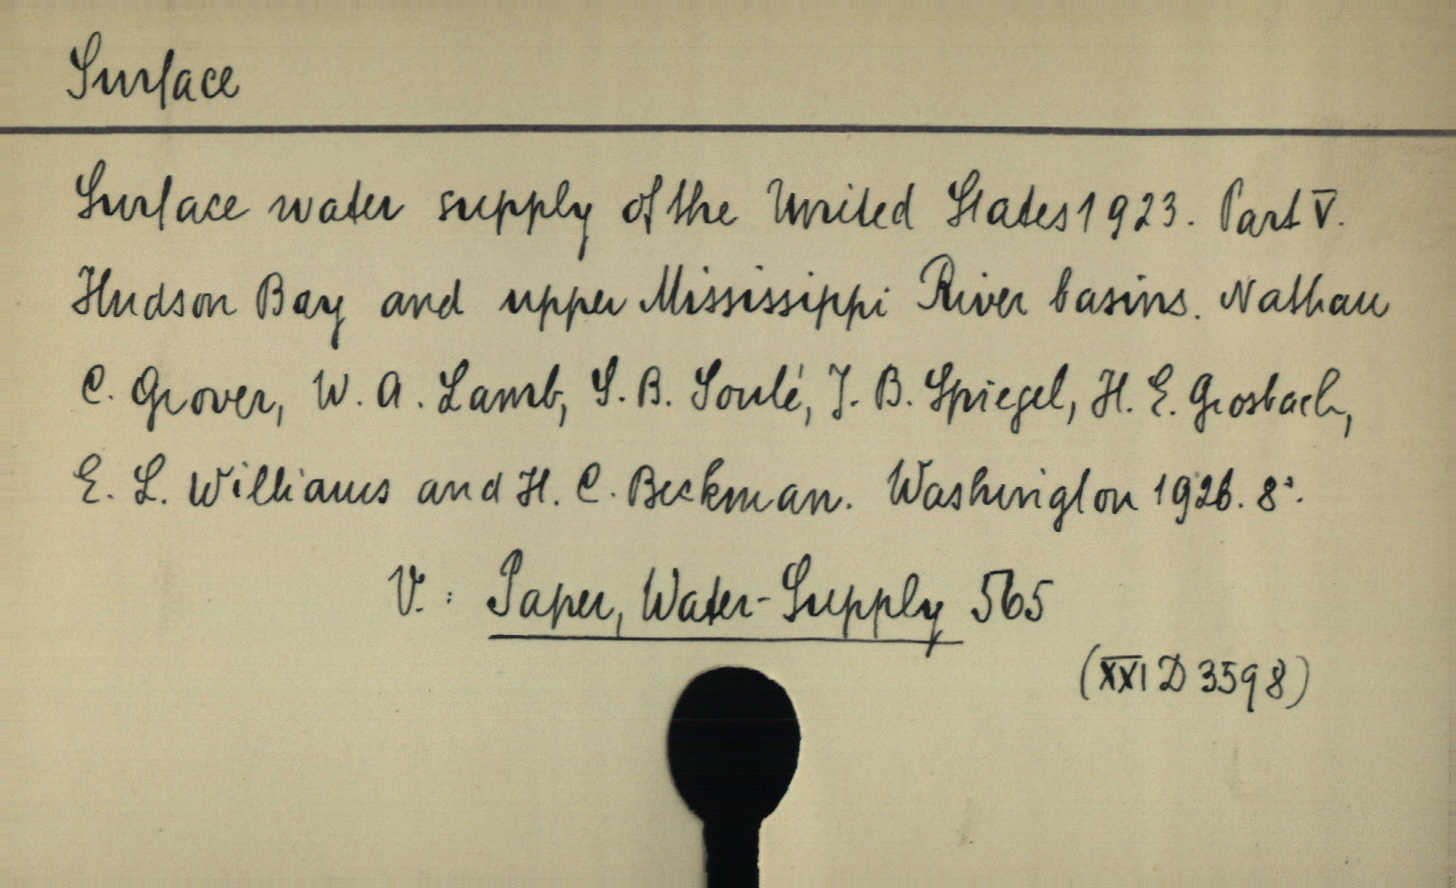 Surface
Surface water supply of the United States 1923. Part V.
Hudson Bay and upper Mississippi River basins. Nathan
C. Grover, W. A. Lamb, S. B. Soulé, J. B. Spiegel, H. E. Grosbach,
E. L. Williams and H. C. Beckman. Washington 1926. 8°.
V.: Paper, Water-Supply 565
(XXI D 3598)